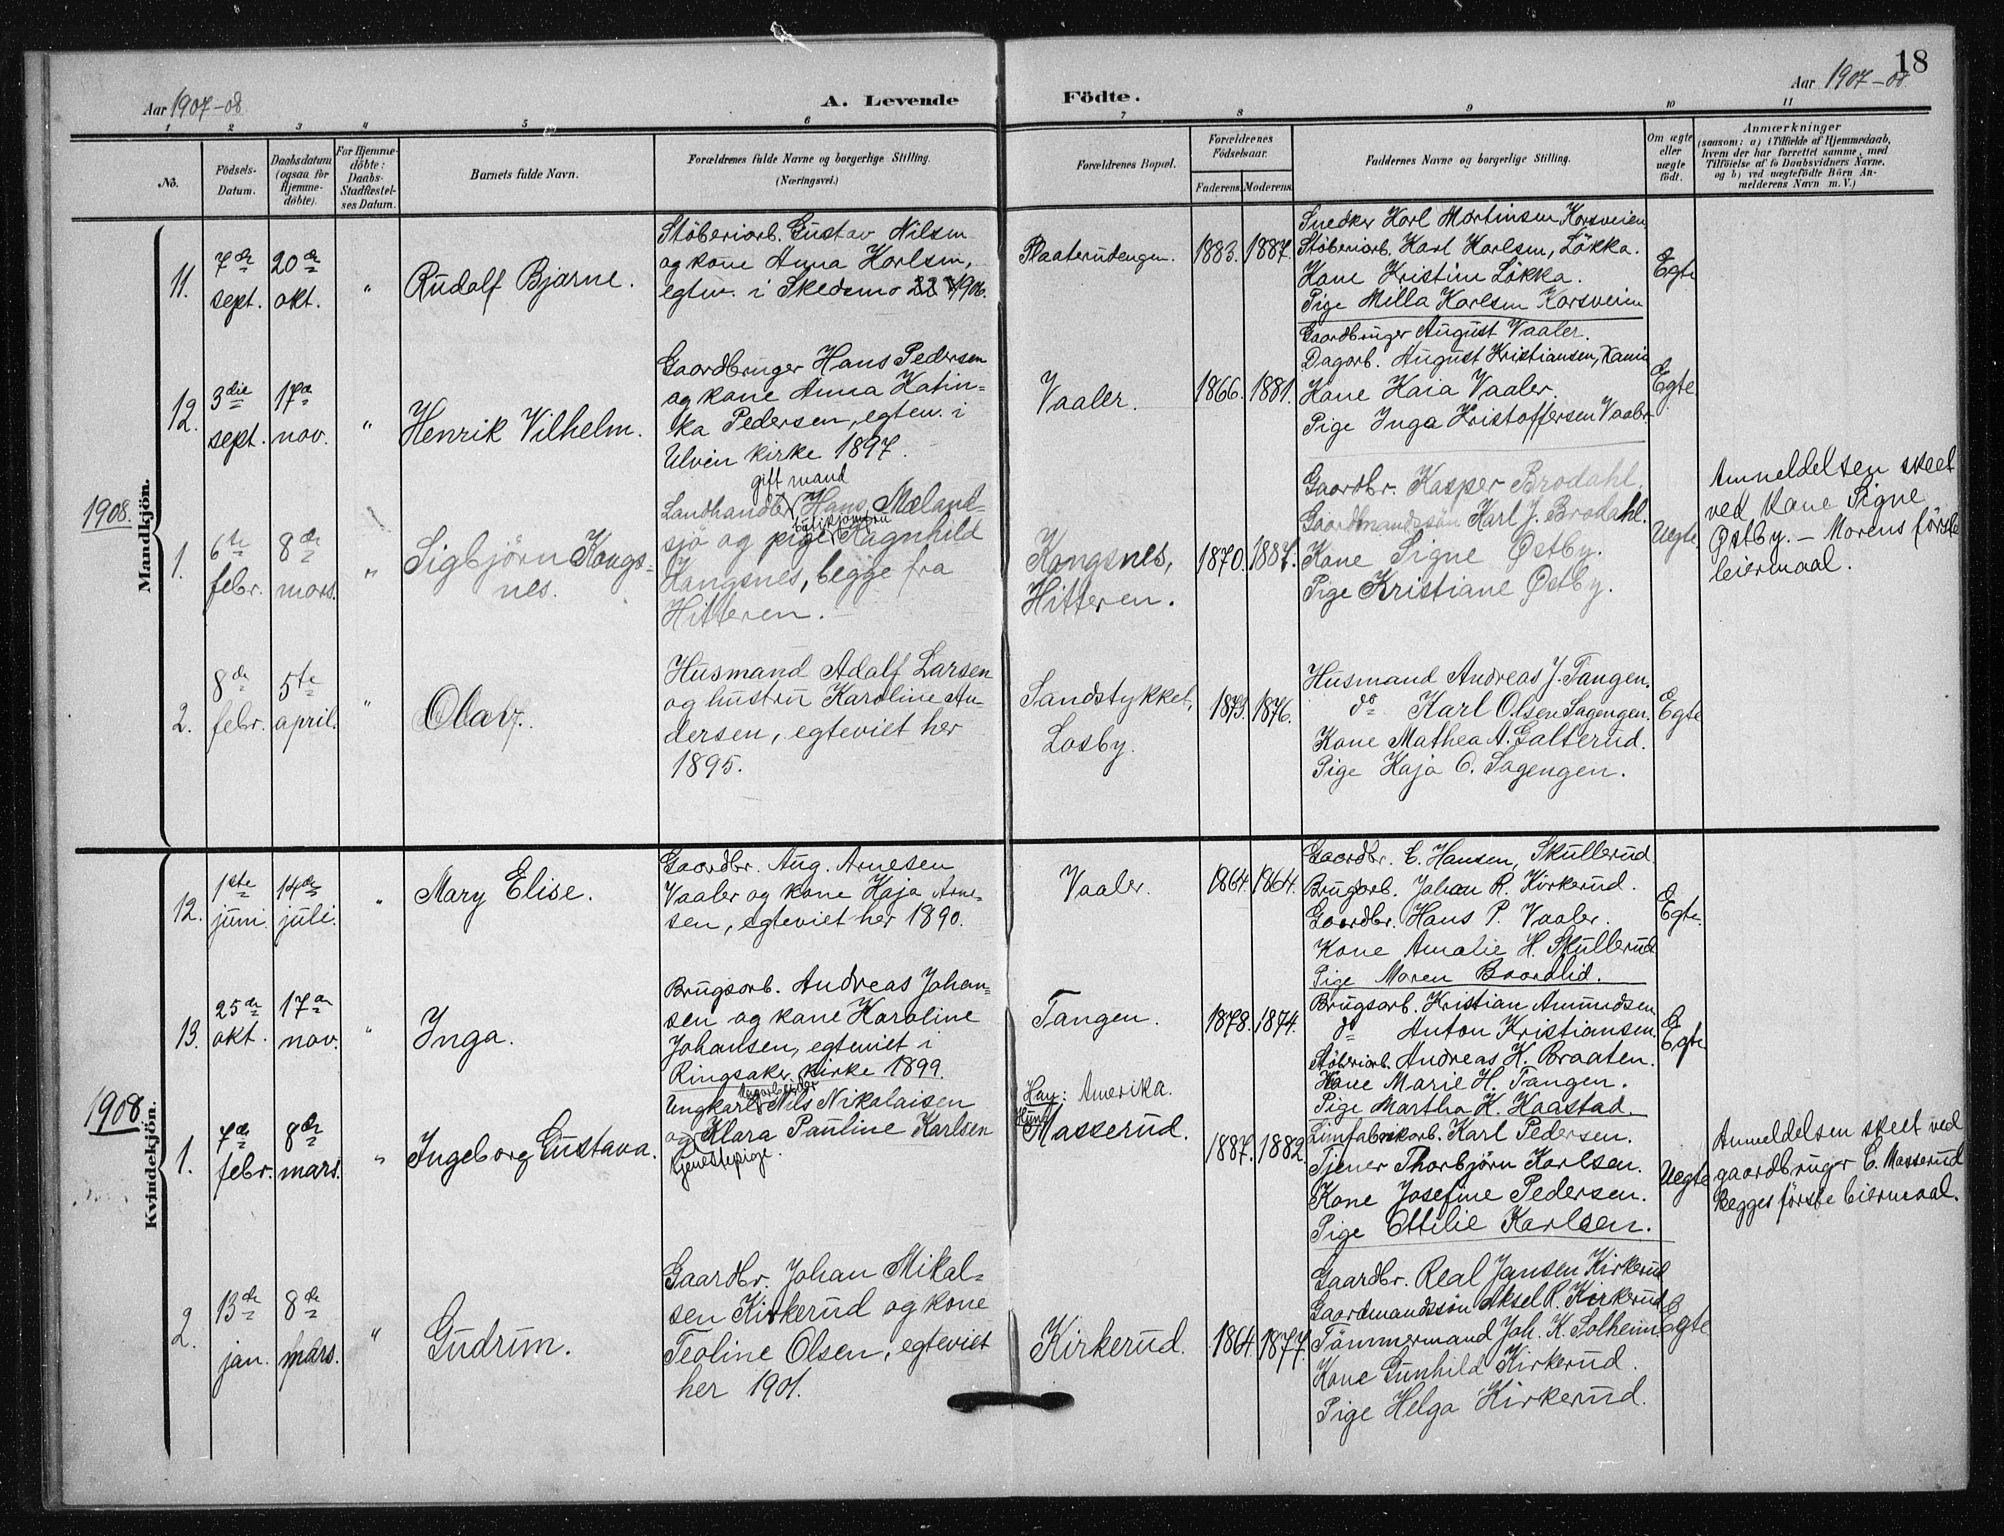 18
Aar 1907-08
A. Levende Födte.
Aar 1907-08
1 2 3 4 5 6 7 8 9 10 11
No.
Födsels-
Datum.
Daabsdatum
(ogsaa for
Hjemme-
döbte).
For Hjemme-
döbte:
Daabs-
Stadfestel-
ses Datum.
Barnets fulde Navn.
Forældrenes fulde Navne og borgerlige Stilling.
(Næringsvei.)
Forældrenes Bopæl.
Forældrenes
Födselsaar.
Faderens. Moderens.
Faddernes Navne og borgerlige Stilling.
Om ægte
eller
uægte
födt.
Anmærkninger
(saasom: a) i Tilfælde af Hjemmedaab,
hvem der har forrettet samme, med
Tilföielse af to Daabsvidners Navne,
og b) ved uægtefödte Börn An-
melderens Navn m. V.)
Mandkjön.
11.
7de
sept.
20de
okt.
"
Rudolf Bjarne.
Stöberiarb. Gustav Nilsen
og kone Anna Karlsen,
egtev. i Skedsmo 1906.
1883. 1887.
Snedker Karl Martinsen Korsveien
Stöberiarb. Karl Karlsen, Lökka.
Kone Kristine Lökka.
Pige Milla Karlsen Korsveien
Egte
12.
3die
sept.
17de
nov.
"
Henrik Vilhelm.
Gaardbruger Hans Pedersen
og kone Anna Katin-
ka Pedersen, egtev. i
Ulvin kirke 1897.
Vaaler.
1866. 1881.
Gaardbruger August Vaaler.
Dagarb. August Kristiansen,
Kone Kaia Vaaler.
Pige Inga Kristoffersen Vaaler
Egte.
1908.
1.
6te
febr.
8de
mars.
"
Sigbjörn Kongs-
nes.
gift mand
Landhandler Hans Mæland-
sjö og pige Ragnhild
Kongsnes, begge fra
Hitteren.
Kongsnes,
Hitteren.
1870. 1887.
Gaardbr. Kasper Brodahl.
Gaardmandssön Karl J. Brodahl.
Kone Signe Østby.
Pige Kristiane Østby.
Uegte.
Anmeldelsen skeet
ved kone Signe
Østby. – Morens förste
leiermaal.
2.
8de
febr.
5te
april.
"
Olav.
Husmand Adolf Larsen
og hustru Karoline An-
dersen, egteviet her
1895.
Sandstykket,
Losby.
1873. 1876.
Husmand Andreas J. Tangen.
do Karl Olsen Sagengen.
Kone Mathea A. Galterud.
Pige Kaja O. Sagengen.
Egte
Kvindekjön.
12.
1ste
juni.
14de
juli.
"
Mary Elise.
Gaardbr. Aug. Arnesen
Vaaler og kone Kaja Arne-
sen, egteviet her 1890.
Vaaler.
1864. 1864.
Gaardbr. E. Hansen, Skullerud.
Brugsarb. Johan R. Kirkerud.
Gaardbr. Hans P. Vaaler.
Kone Amalie H. Skullerud
Pige Maren Baardlid.
Egte.
13.
25de
okt.
17de
nov.
"
Inga.
Brugsarb. Andreas Johan-
sen og kone Karoline
Johansen, egteviet i
Ringsaker kirke 1899.
Tangen.
1878. 1874.
Brugsarb. Kristian Amundsen
do Anton Kristiansen.
Stöberiarb. Andreas K. Braaten.
Kone Marie H. Tangen.
Pige Martha K. Haastad.
Egte
1908.
1.
7de
febr.
8de
mars.
"
Ingeborg Gustava.
Ungkarl Nils Nikolaisen
og Klara Pauline Karlsen
tjenestepige.
Han: Amerika.
Hun:
Masserud.
1887. 1882.
Limfabrikarb. Karl Pedersen.
Tjener Thorbjörn Karlsen.
Kone Josefine Pedersen.
Pige Ottilie Karlsen.
Uegte
Anmeldelsen skeet ved
gaardbruger C. Masserud
Begges förste leiermaal.
2.
13de
jan.
8de
mars.
"
Gudrun.
Gaardbr. Johan Mikal-
sen Kirkerud og kone
Teoline Olsen, egteviet
her 1901.
Kirkerud.
1864. 1877.
Gaardbr. Real Jansen Kirkerud
Gaardmandssön Aksel R. Kirkerud
Tömmermand Joh. K. Solheim
Kone Gunhild Kirkerud.
Pige Helga Kirkerud.
Egte